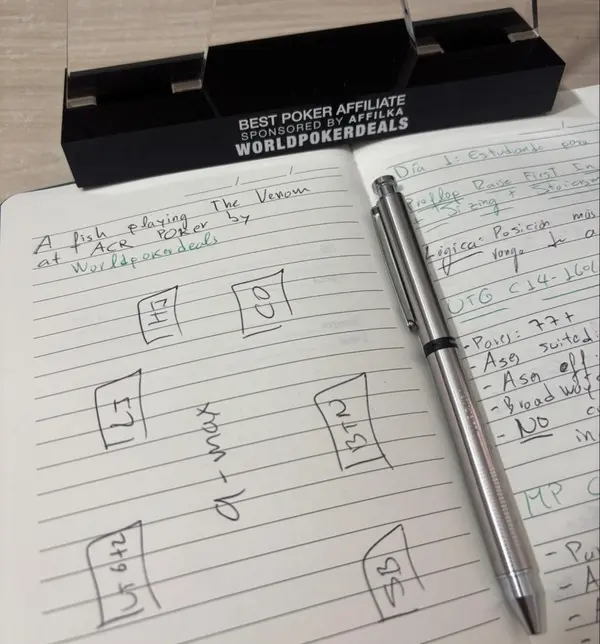 BEST POKER AFFILIATE
SPONSORED BY AFFILKA
WORLDPOKERDEALS
A fish playing The Venom
at ACR POKER by
Worldpokerdeals
HJ
CO
LJ
BTN
9-max
UTG+2
SB
Día 1: Estudiando
Preflop Raise First In
Sizing +
Lógica: Posición más
rango
UTG (14-16%
- Pares: 77+
- Ases suited
- Ases off
- Broadway
- NO
in
MP C